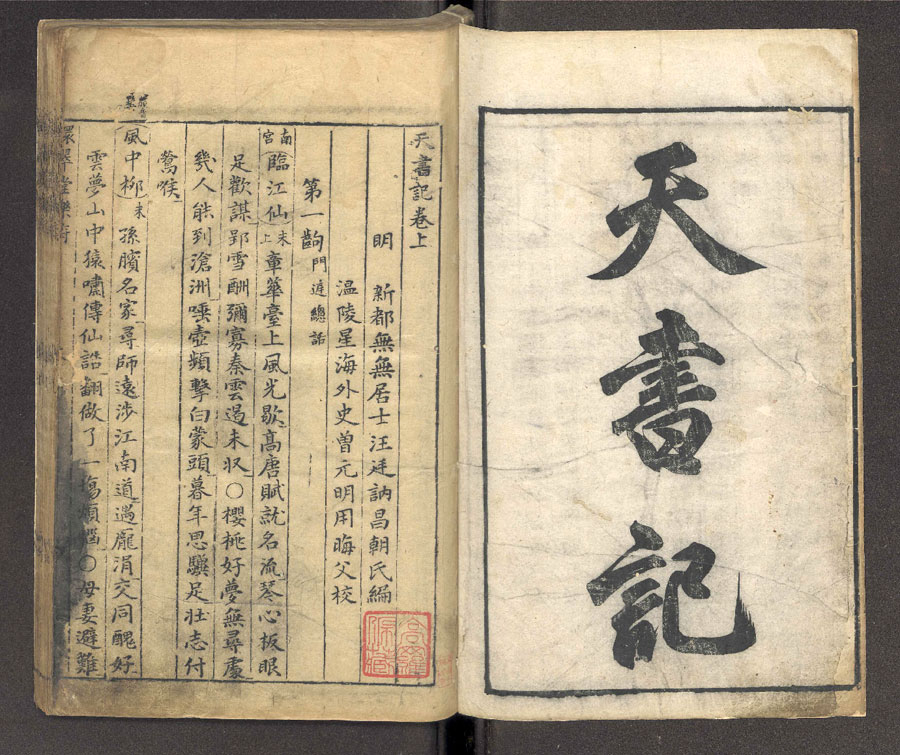 天書記
天書記卷上
明　新都無無居士汪廷訥昌朝氏編
温陵星海外史曽元明用晦父校
第一齣 門遞總話
南宮
臨江仙 末上 章華臺上風光歇高唐賦就名流琴心板眼
足歡謀郢雪酬彌寡秦雲遏未収〇櫻桃好夢無尋處
幾人能到滄洲唾壺頻擊白蒙頭暮年思驥足壮志付
鶯喉
風中柳 末 孫臏名家尋師遠涉江南道遇龐涓交同醜好
雲夢山中猿嘯傳仙誥翻做了一塲煩惱〇母妻避難
環翠堂樂府